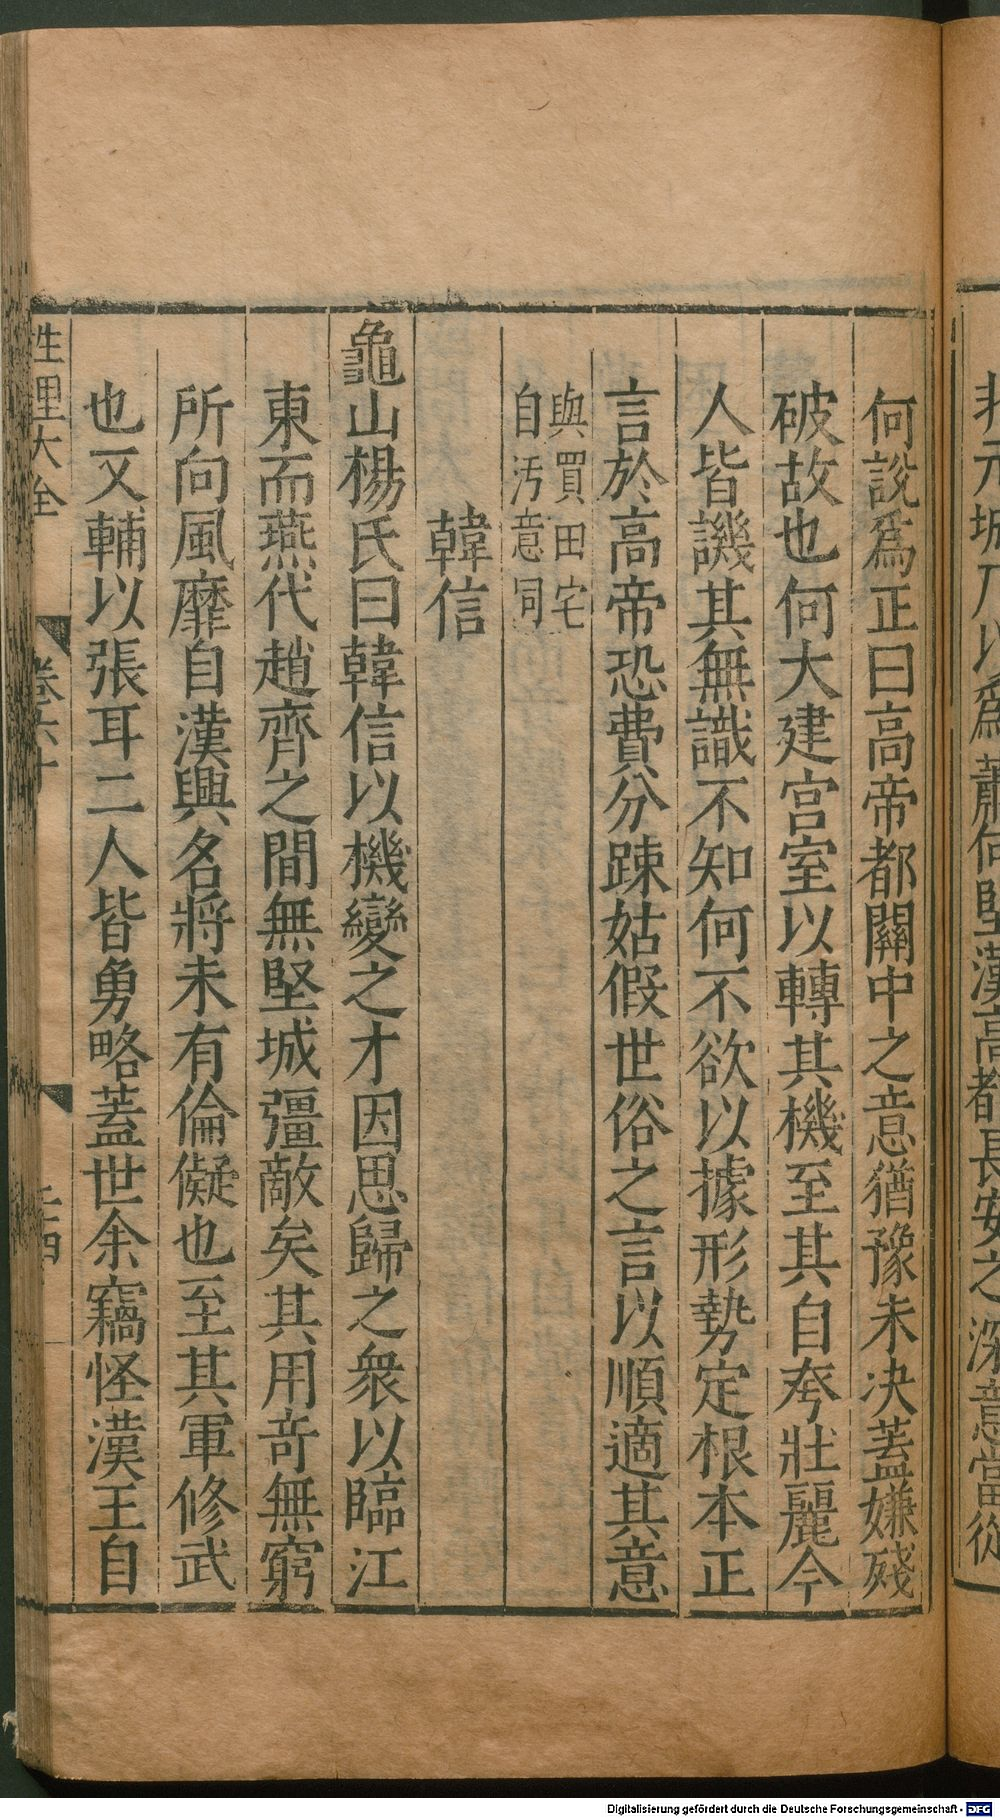 扵元城乃以爲蕭何堅漢高都長安之深意當從
何說爲正曰高帝都關中之意猶豫未决蓋嫌殘
破故也何大建宫室以轉其機至其自夸壯麗今
人皆譏其無識不知何不欲以據形勢定根本正
言於高帝恐費分踈姑假世俗之言以順適其意
與買田宅
自汚意同
韓信
龜山楊氏曰韓信以機變之才因思歸之衆以臨江
東而燕代趙齊之間無堅城彊敵矣其用竒無窮
所向風靡自漢興名將未有倫儗也至其軍修武
也又輔以張耳二人皆勇略蓋世余竊怪漢王自
性理大全 卷六十
Digitalisierung gefördert durch die Deutsche Forschungsgemeinschaft - DFG